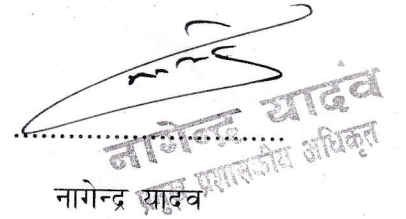 नागेन्द्र यादव
प्रमुख प्रशासकीय अधिकृत
नागेन्द्र यादव